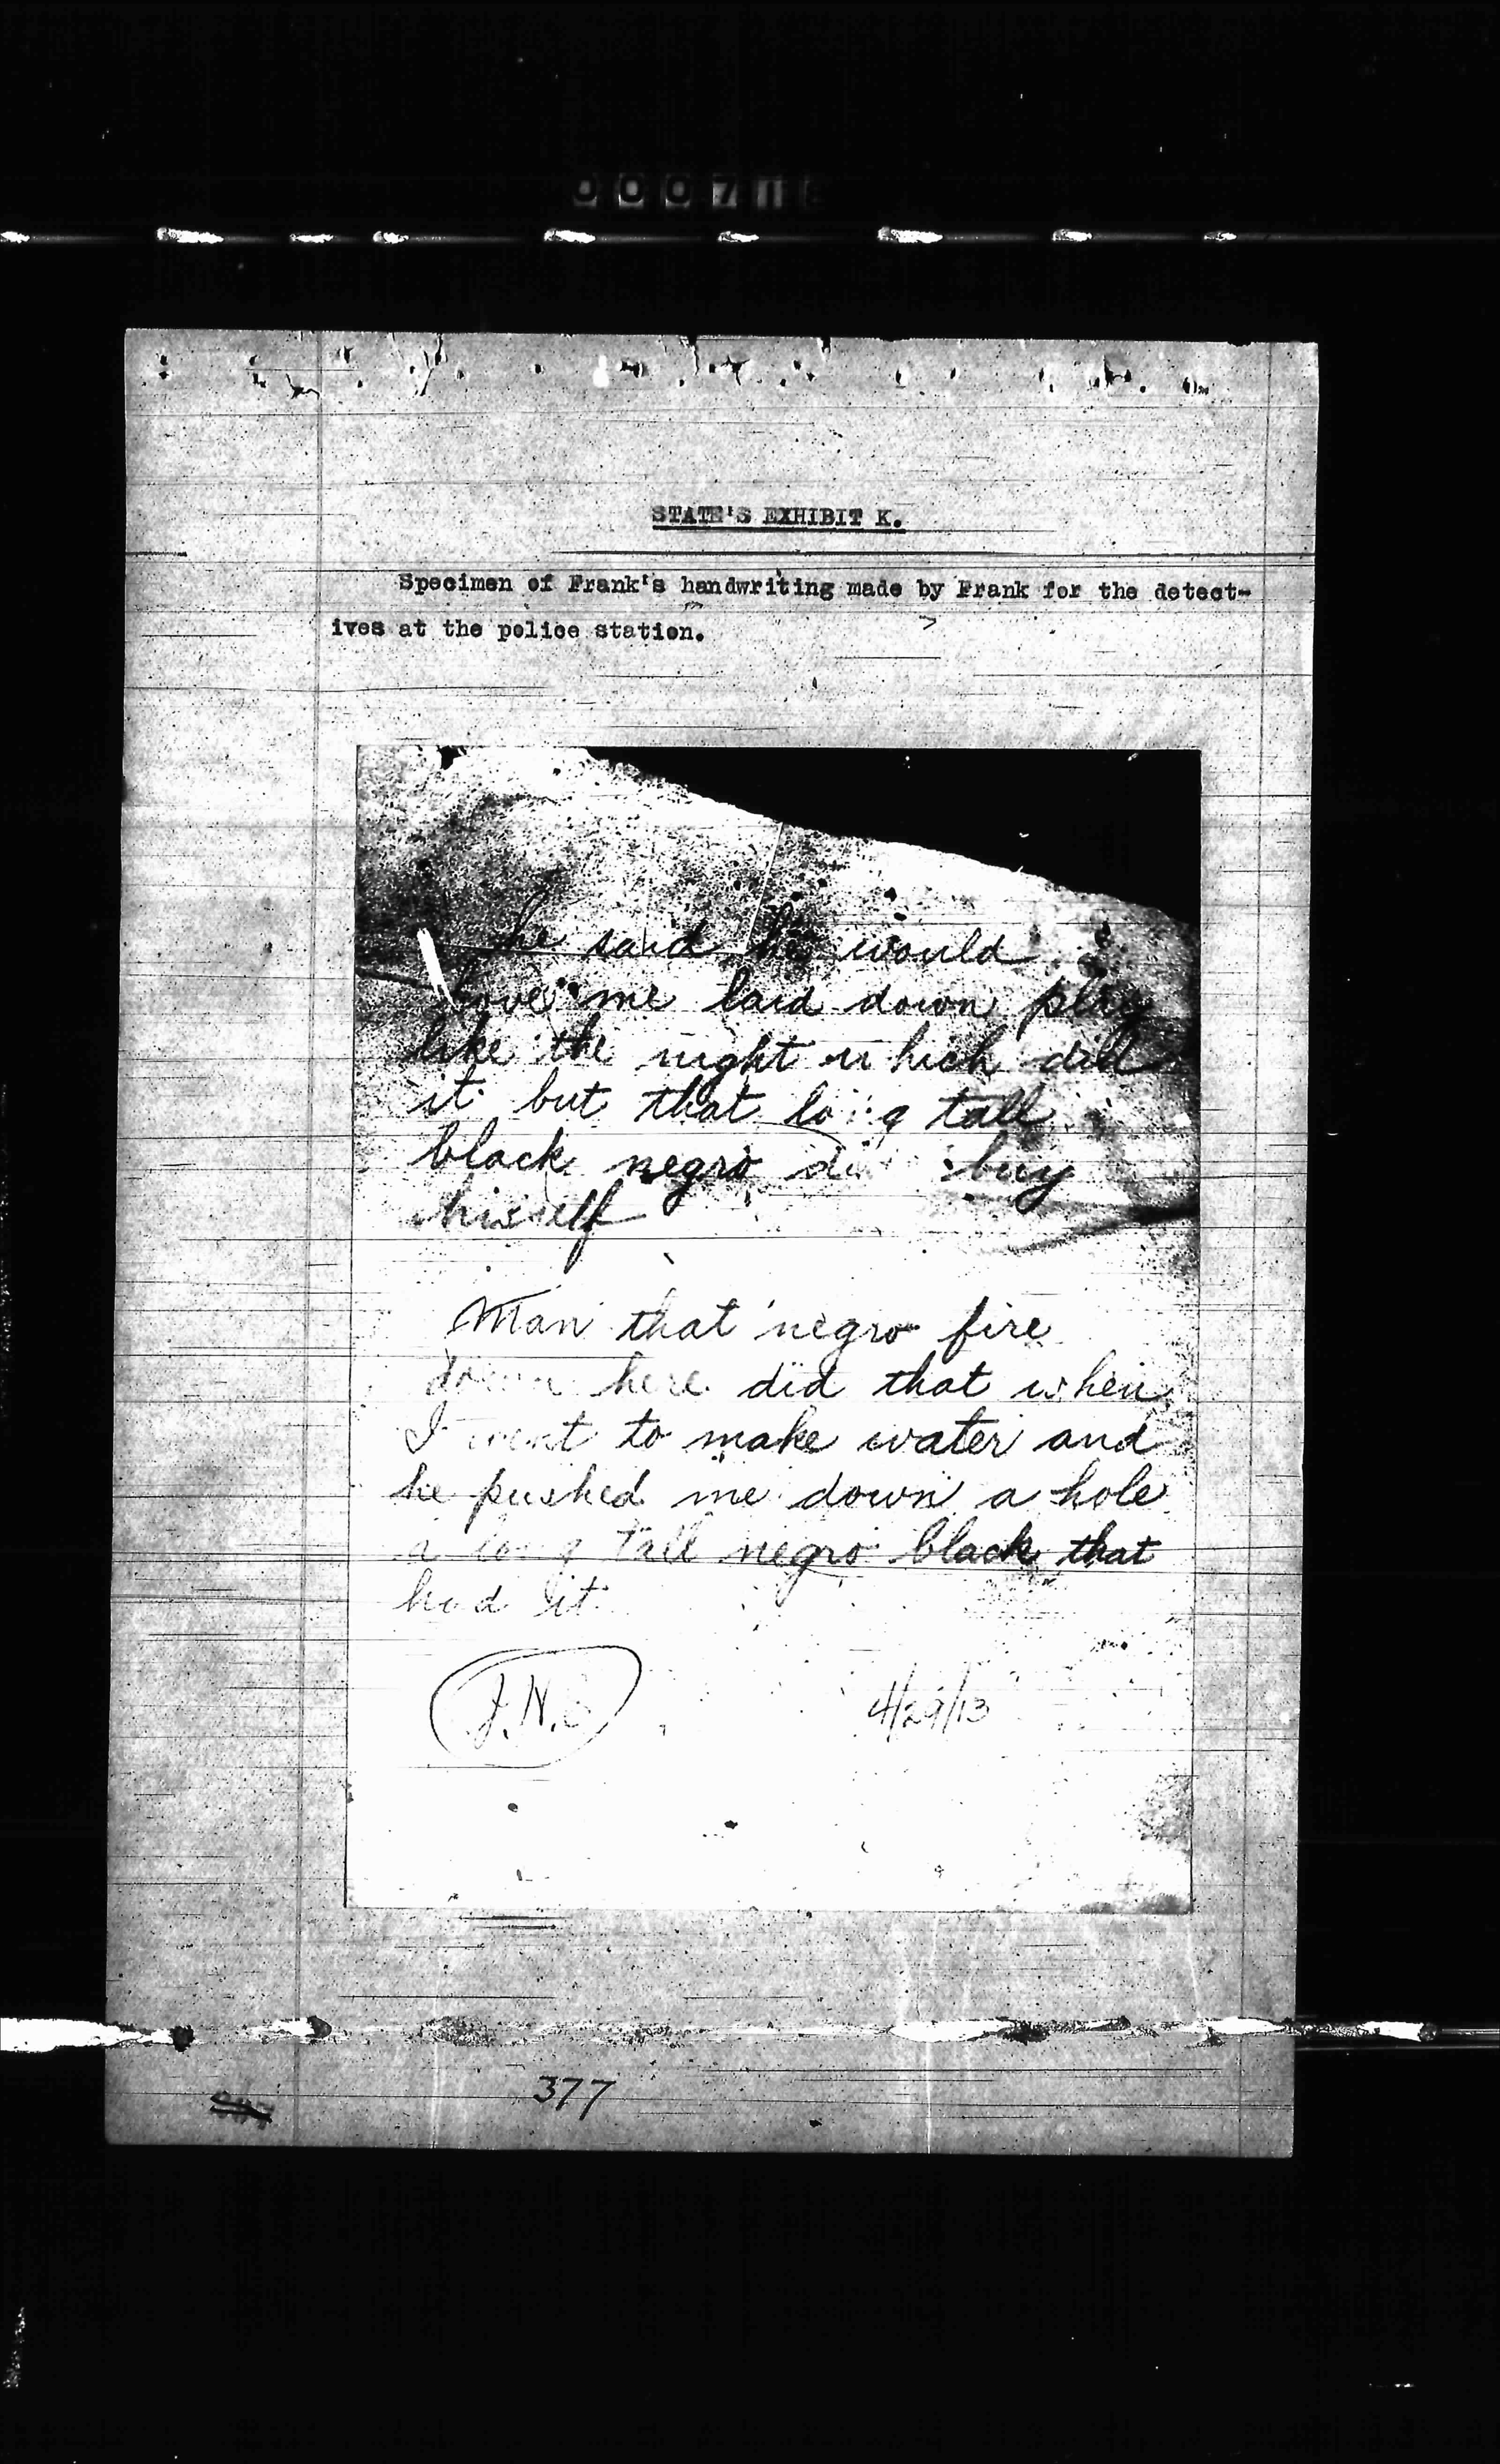 STATE'S EXHIBIT K.
Specimen of Frank's handwriting made by Frank for the detect-
ives at the police station.
he said he would
love me laid down play
like the night which did
it but that long tall
black negro did buy
hisself
Man that negro fire
down here did that when
I went to make water and
he pushed me down a hole
a long tall negro black that
had it
4/29/13
377